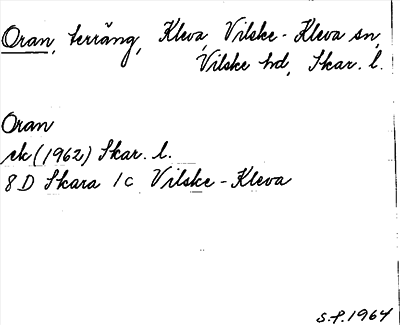 Oran, terräng, Kleva, Vilske-Kleva sn,
Vilske hd, Skar. l.
Oran
ek (1962) Skar. l.
8D Skara 1c Vilske-Kleva
S.F. 1964